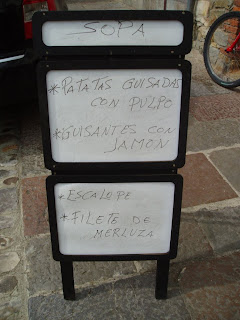 SOPA
*PATATAS GUISADAS
CON PULPO
*GUISANTES CON
JAMON
*ESCALOPE
*FILETE DE
MERLUZA